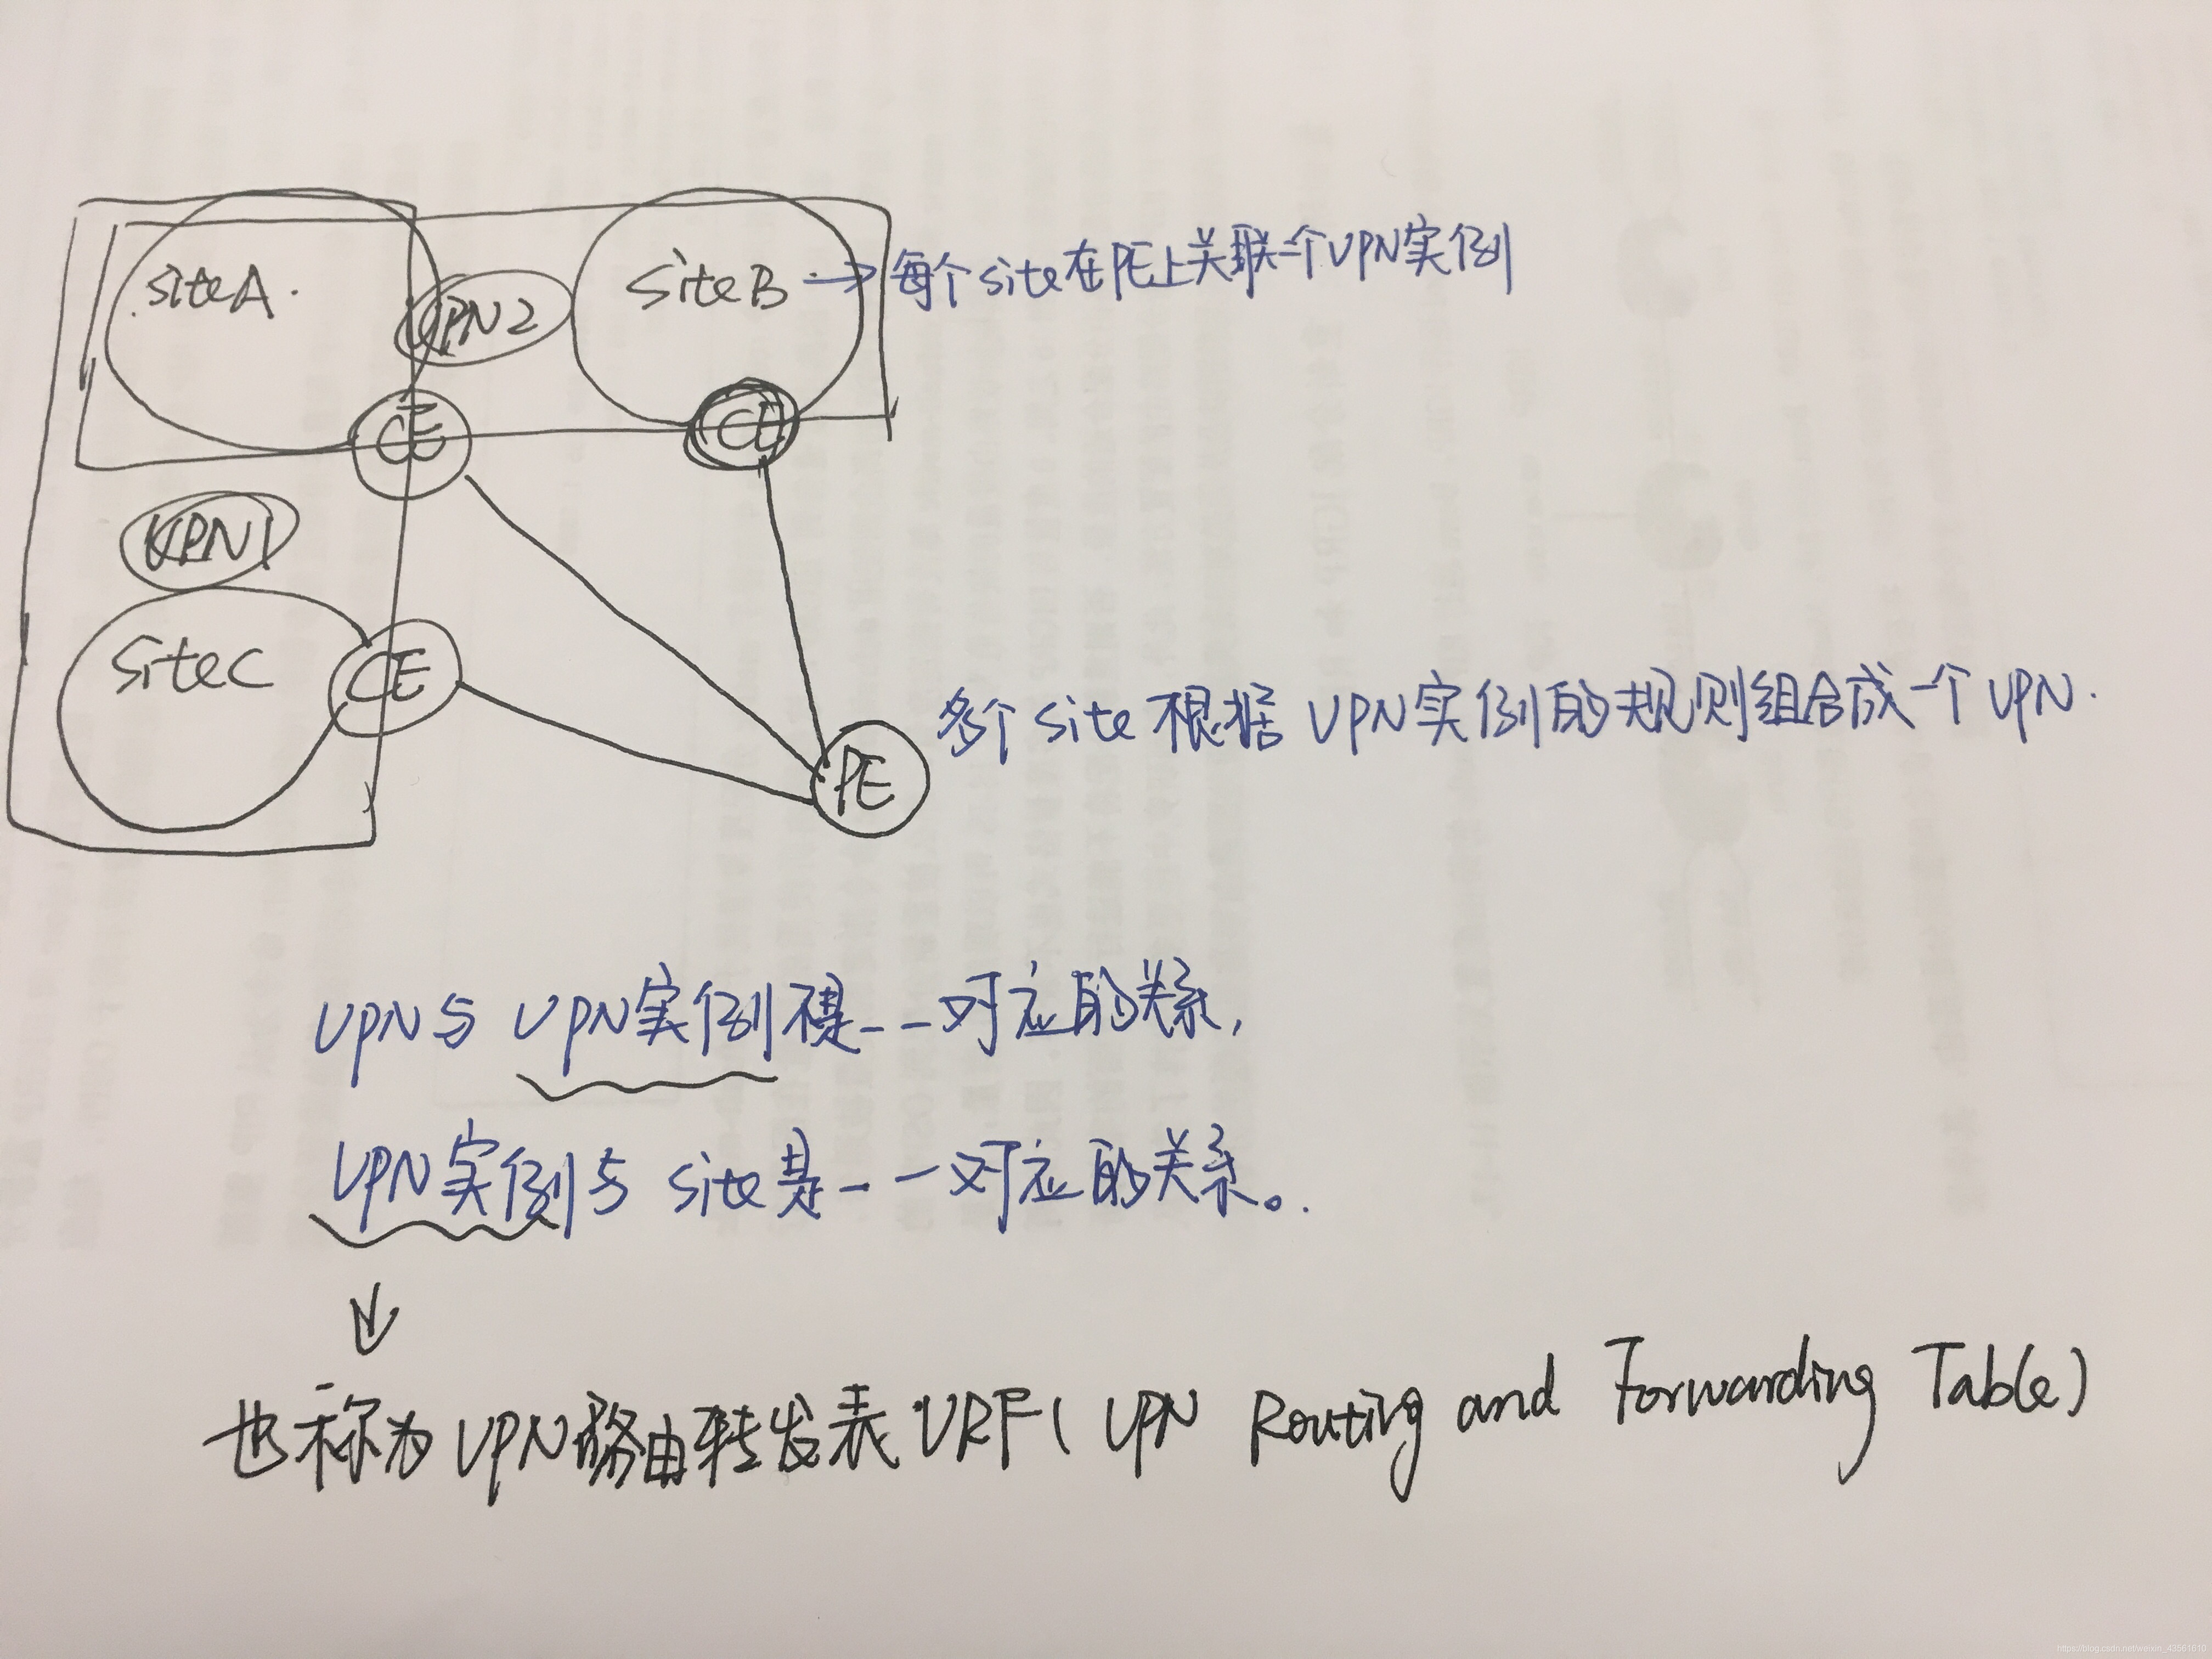 siteA.
VPN2
siteB → 每个site在PE上关联一个VPN实例
CE
CE
VPN1
siteC
CE
PE
多个site根据VPN实例的规则组合成一个VPN.
VPN与VPN实例不是一一对应的关系,
VPN实例与site是一一对应的关系。
↓
也称为VPN路由转发表VRF(VPN Routing and Forwarding Table)
https://blog.csdn.net/weixin_43561610